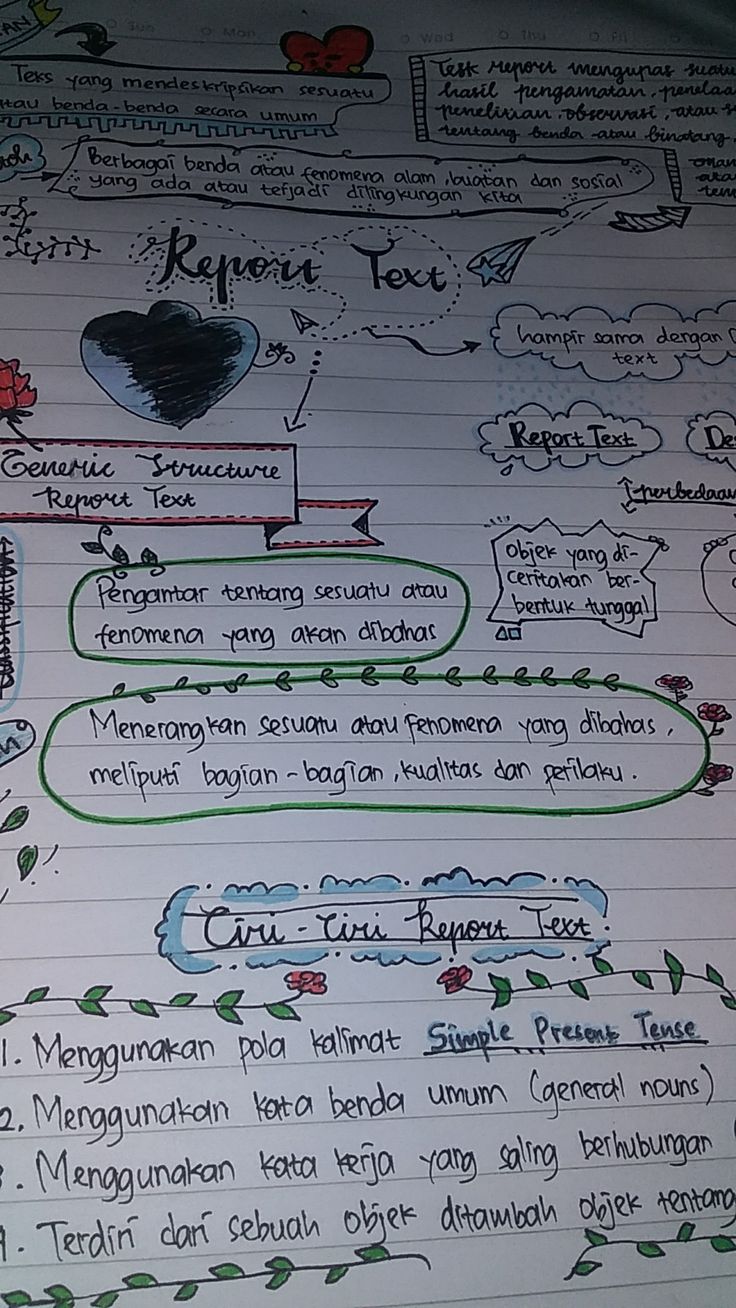 Sun Mon Wed Thu Fri
Teks yang mendeskripsikan sesuatu
atau benda-benda secara umum
Teks report mengupas suatu
hasil pengamatan, penelaa
penelitian, observasi, atau s
tentang benda atau binatang,
Berbagai benda atau fenomena alam, buatan dan sosial
yang ada atau terjadi dilingkungan kita
Report Text
hampir sama dengan
text
Report Text
De
perbedaan
Generic Structure
Report Text
objek yang di-
ceritakan ber-
bentuk tunggal
Pengantar tentang sesuatu atau
fenomena yang akan dibahas
Menerangkan sesuatu atau fenomena yang dibahas,
meliputi bagian-bagian, kualitas dan perilaku.
Ciri-Ciri Report Text
1. Menggunakan pola kalimat Simple Present Tense
2. Menggunakan kata benda umum (general nouns)
3. Menggunakan kata kerja yang saling berhubungan (
4. Terdiri dari sebuah objek ditambah objek tentang